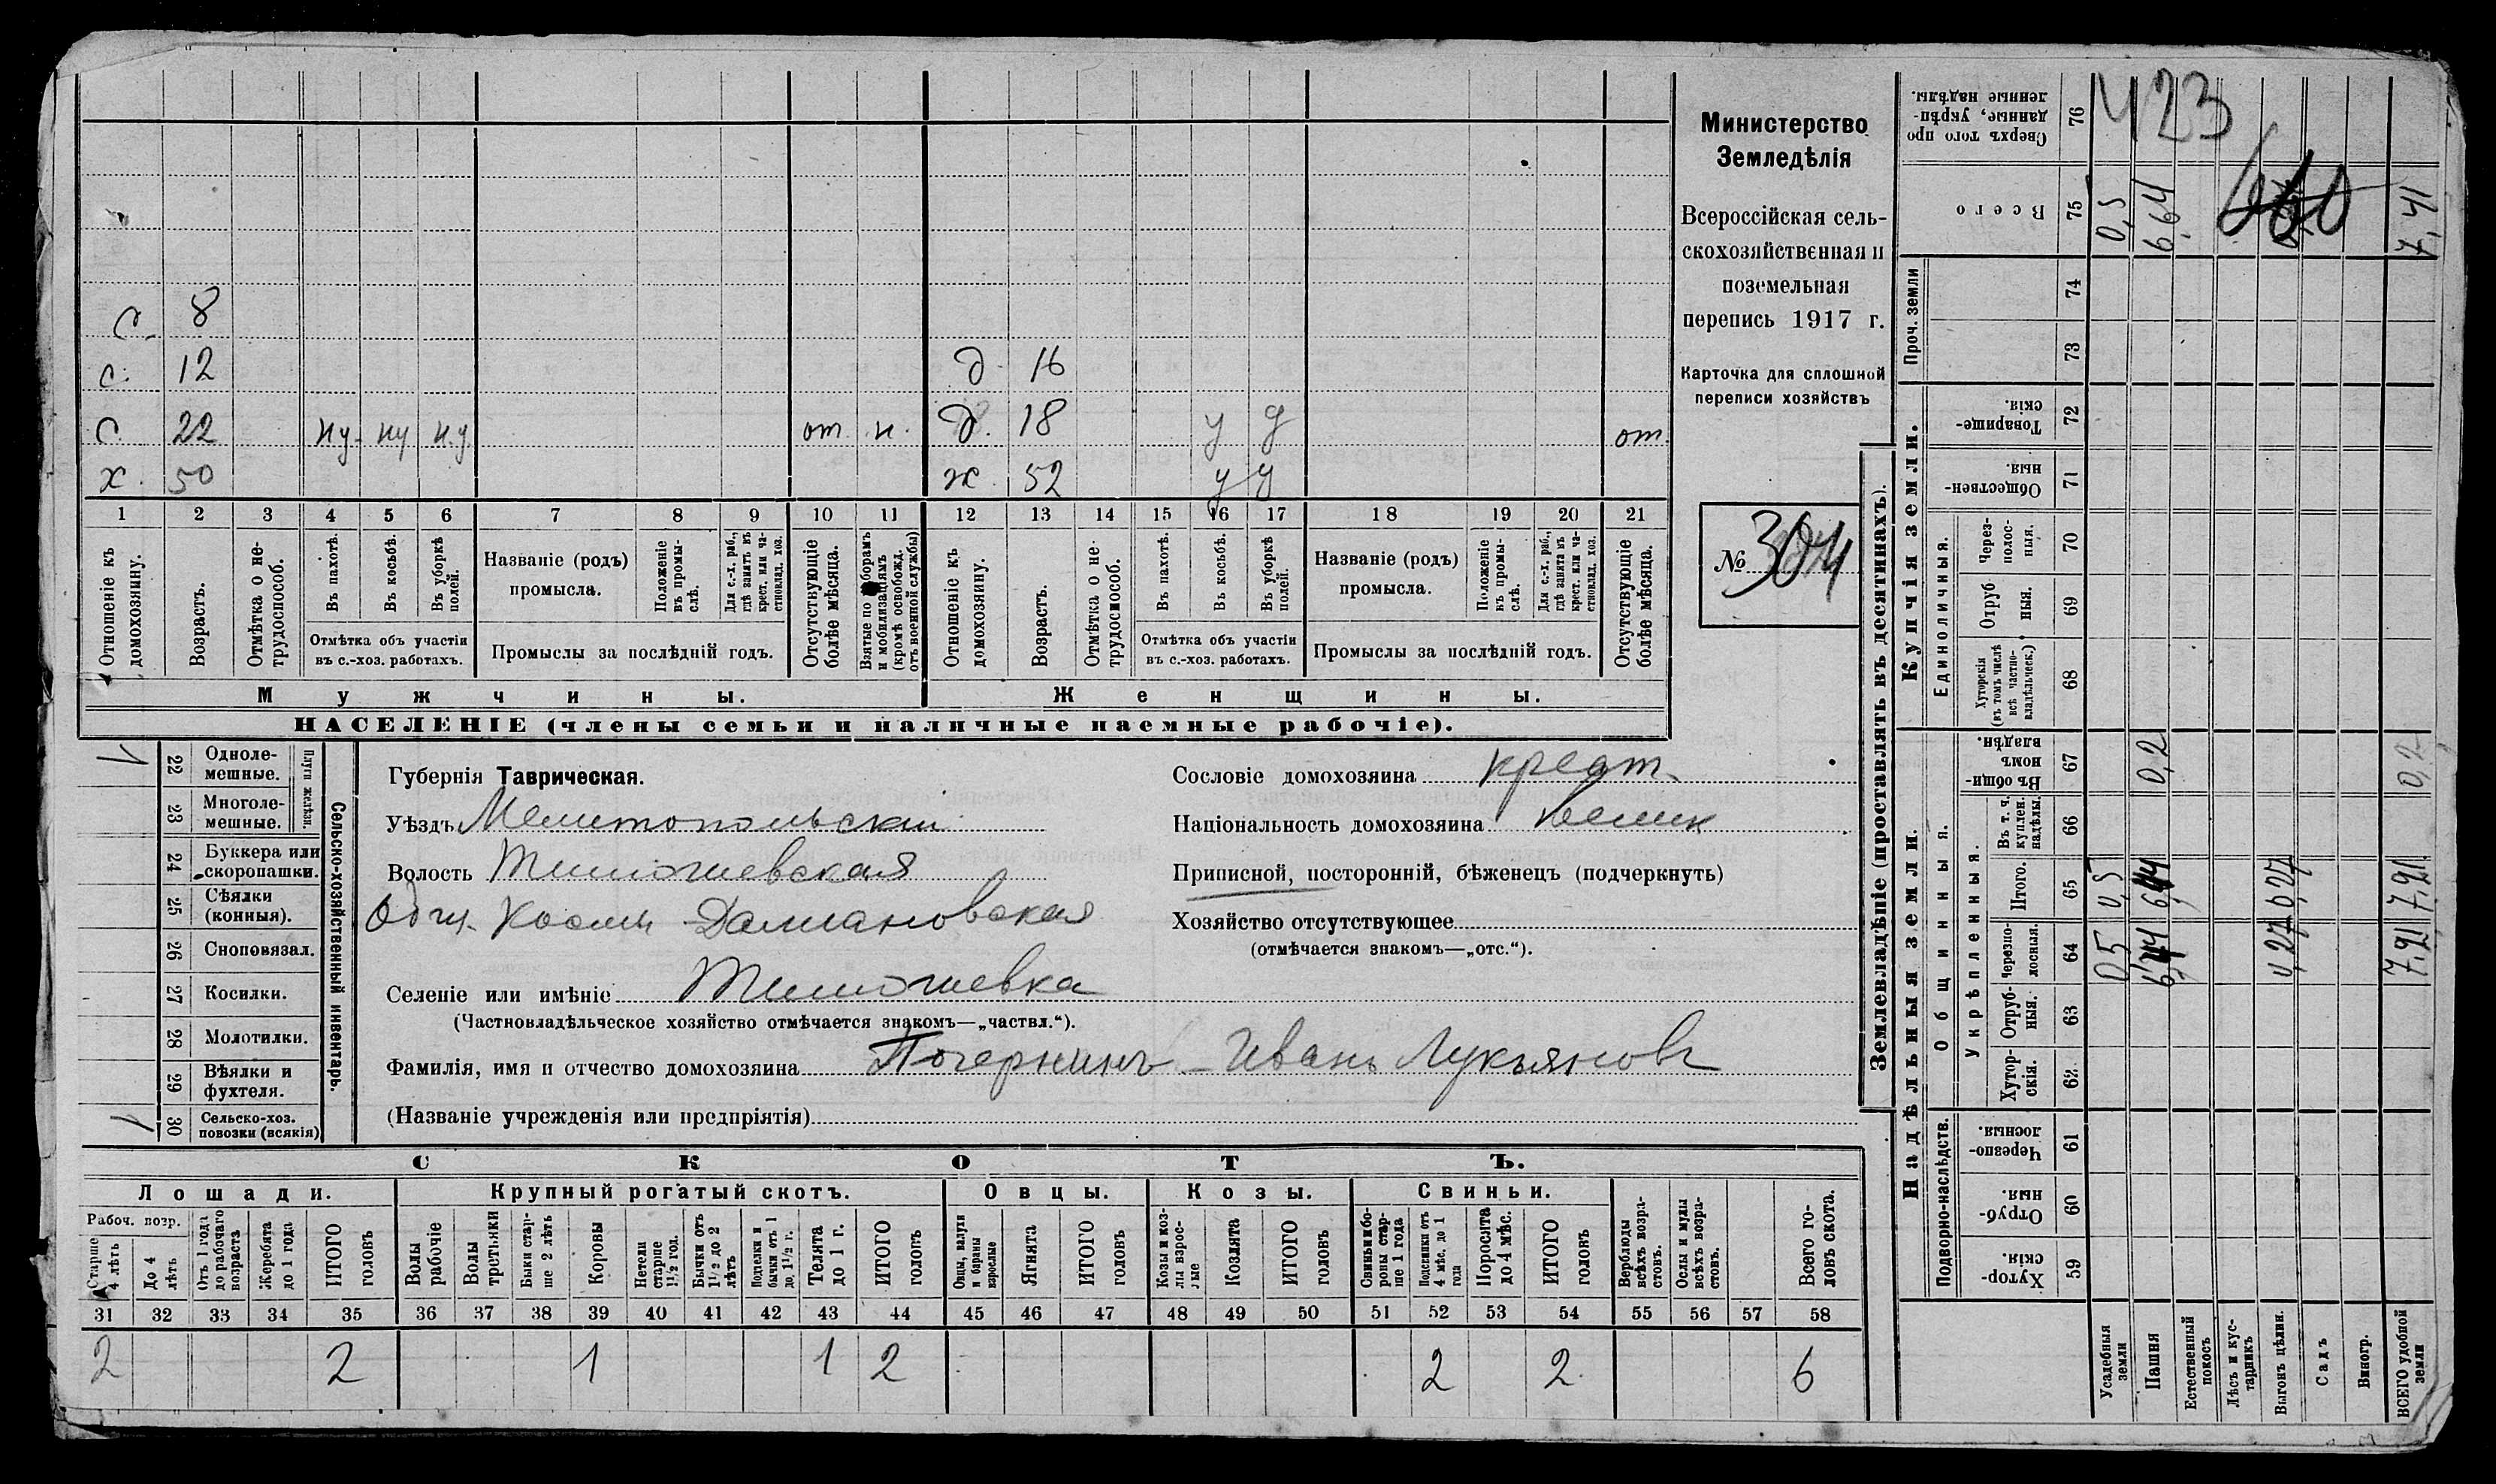 Министерство
Земледѣлія
Всероссійская сель-
скохозяйственная и
поземельная
перепись 1917 г.
Карточка для сплошной
переписи хозяйствъ
№ 304
с. 8
с. 12 д. 16
с. 22 ну. ну н.у. от. н. д. 18 у у от.
х. 50 ж. 52 у у
1 2 3 4 5 6 7 8 9 10 11 12 13 14 15 16 17 18 19 20 21
Отношеніе къ домохозяину.
Возрастъ.
Отмѣтка о не-трудоспособ.
Въ пахотѣ.
Въ косьбѣ.
Въ уборкѣ полей.
Отмѣтка объ участіи
въ с.-хоз. работахъ.
Названіе (родъ)
промысла.
Положеніе въ промы-слѣ.
Для с.-х. раб., гдѣ занятъ въ крест. или ча-стновлад. хоз.
Промыслы за послѣдній годъ.
Отсутствующіе болѣе мѣсяца.
Взятые по наборамъ и мобилизаціямъ (кромѣ освобожд. отъ военной службы)
Отношеніе къ домохозяину.
Возрастъ.
Отмѣтка о не-трудоспособ.
Въ пахотѣ.
Въ косьбѣ.
Въ уборкѣ полей.
Отмѣтка объ участіи
въ с.-хоз. работахъ.
Названіе (родъ)
промысла.
Положеніе въ промы-слѣ.
Для с.-х. раб., гдѣ занята въ крест. или ча-стновлад. хоз.
Промыслы за послѣдній годъ.
Отсутствующіе болѣе мѣсяца.
Мужчины. Женщины.
НАСЕЛЕНІЕ (члены семьи и наличные наемные рабочіе).
Сельско-хозяйственный инвентарь.
Плуги желѣзн.
1 22 Одноле-мешные.
23 Многоле-мешные.
24 Буккера или скоропашки.
25 Сѣялки (конныя).
26 Сноповязал.
27 Косилки.
28 Молотилки.
29 Вѣялки и фухтеля.
1 30 Сельско-хоз. повозки (всякія)
Губернія Таврическая.
Уѣздъ Мелитопольскій
Волость Тимошевская
Общ. Косьмы Даміановская
Селеніе или имѣніе Тимошевка
(Частновладѣльческое хозяйство отмѣчается знакомъ—„частвл.“).
Фамилія, имя и отчество домохозяина Почернинъ - Иванъ Лукьяновъ
(Названіе учрежденія или предпріятія)
Сословіе домохозяина крест.
Національность домохозяина велик
Приписной, посторонній, бѣженецъ (подчеркнуть)
Хозяйство отсутствующее
(отмѣчается знакомъ—„отс.“).
СКОТЪ.
Лошади. Крупный рогатый скотъ. Овцы. Козы. Свиньи.
Рабоч. возр.
Старше 4 лѣтъ
До 4 лѣтъ
Отъ 1 года до рабочаго возраста
Жеребята до 1 года
ИТОГО головъ
Волы рабочіе
Волы третьяки
Быки стар-ше 2 лѣтъ
Коровы
Нетели старше 1½ год.
Бычки отъ 1½ до 2 лѣтъ
Подтелки и бычки отъ 1 до 1½ г.
Телята до 1 г.
ИТОГО головъ
Овцы, валухи и бараны взрослые
Ягнята
ИТОГО головъ
Козы и коз-лы взрос-лые
Козлята
ИТОГО головъ
Свиньи и бо-ровы стар-ше 1 года
Подсвинки отъ 4 мѣс. до 1 года
Поросята до 4 мѣс.
ИТОГО головъ
Верблюды всѣхъ возра-стовъ.
Ослы и мулы всѣхъ возра-стовъ.
Всего го-ловъ скота.
31 32 33 34 35 36 37 38 39 40 41 42 43 44 45 46 47 48 49 50 51 52 53 54 55 56 57 58
2 2 1 1 2 2 2 6
Землевладѣніе (проставлять въ десятинахъ).
Надѣльныя земли. Купчія земли. Проч. земли
Подворно-наслѣдств.
Общинныя.
Укрѣпленныя.
Единоличныя.
Хутор-скія. 59
Отруб-ныя. 60
Черезпо-лосныя. 61
Хутор-скія. 62
Отруб-ныя. 63
Черезпо-лосныя. 64
Итого. 65
Въ т. ч. куплен. надѣлы. 66
Въ общи-номъ владѣн. 67
Хуторскія (въ томъ числѣ всѣ частно-владѣльческ.) 68
Отруб ныя. 69
Через-полос-ныя. 70
Обществен-ныя. 71
Товарище-скія. 72
73
74
Всего 75
Сверхъ того про данные, укрѣп-ленные надѣлы. 76
423
Усадебныя земли 0,5 0,5 0,5
Пашня 0,2 6,64
Естественный покосъ
Лѣсъ и кус-тарникъ
Выгонъ цѣлин. 0,27 0,27
Садъ
Виногр.
ВСЕГО удобной земли 7,21 7,21 0,2 7,41